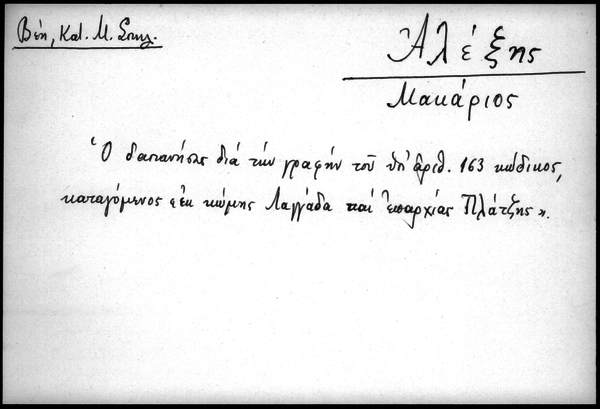 Βέη, Κατ. Μ. Σπηλ.
Ἀλέξης
Μακάριος
Ὁ δαπανήσας διά τήν γραφήν τοῦ ὑπ' ἀριθ. 163 κώδικος,
καταγόμενος «ἐκ κώμης Λαγγάδα καί ἐπαρχίας Πλάτζης».